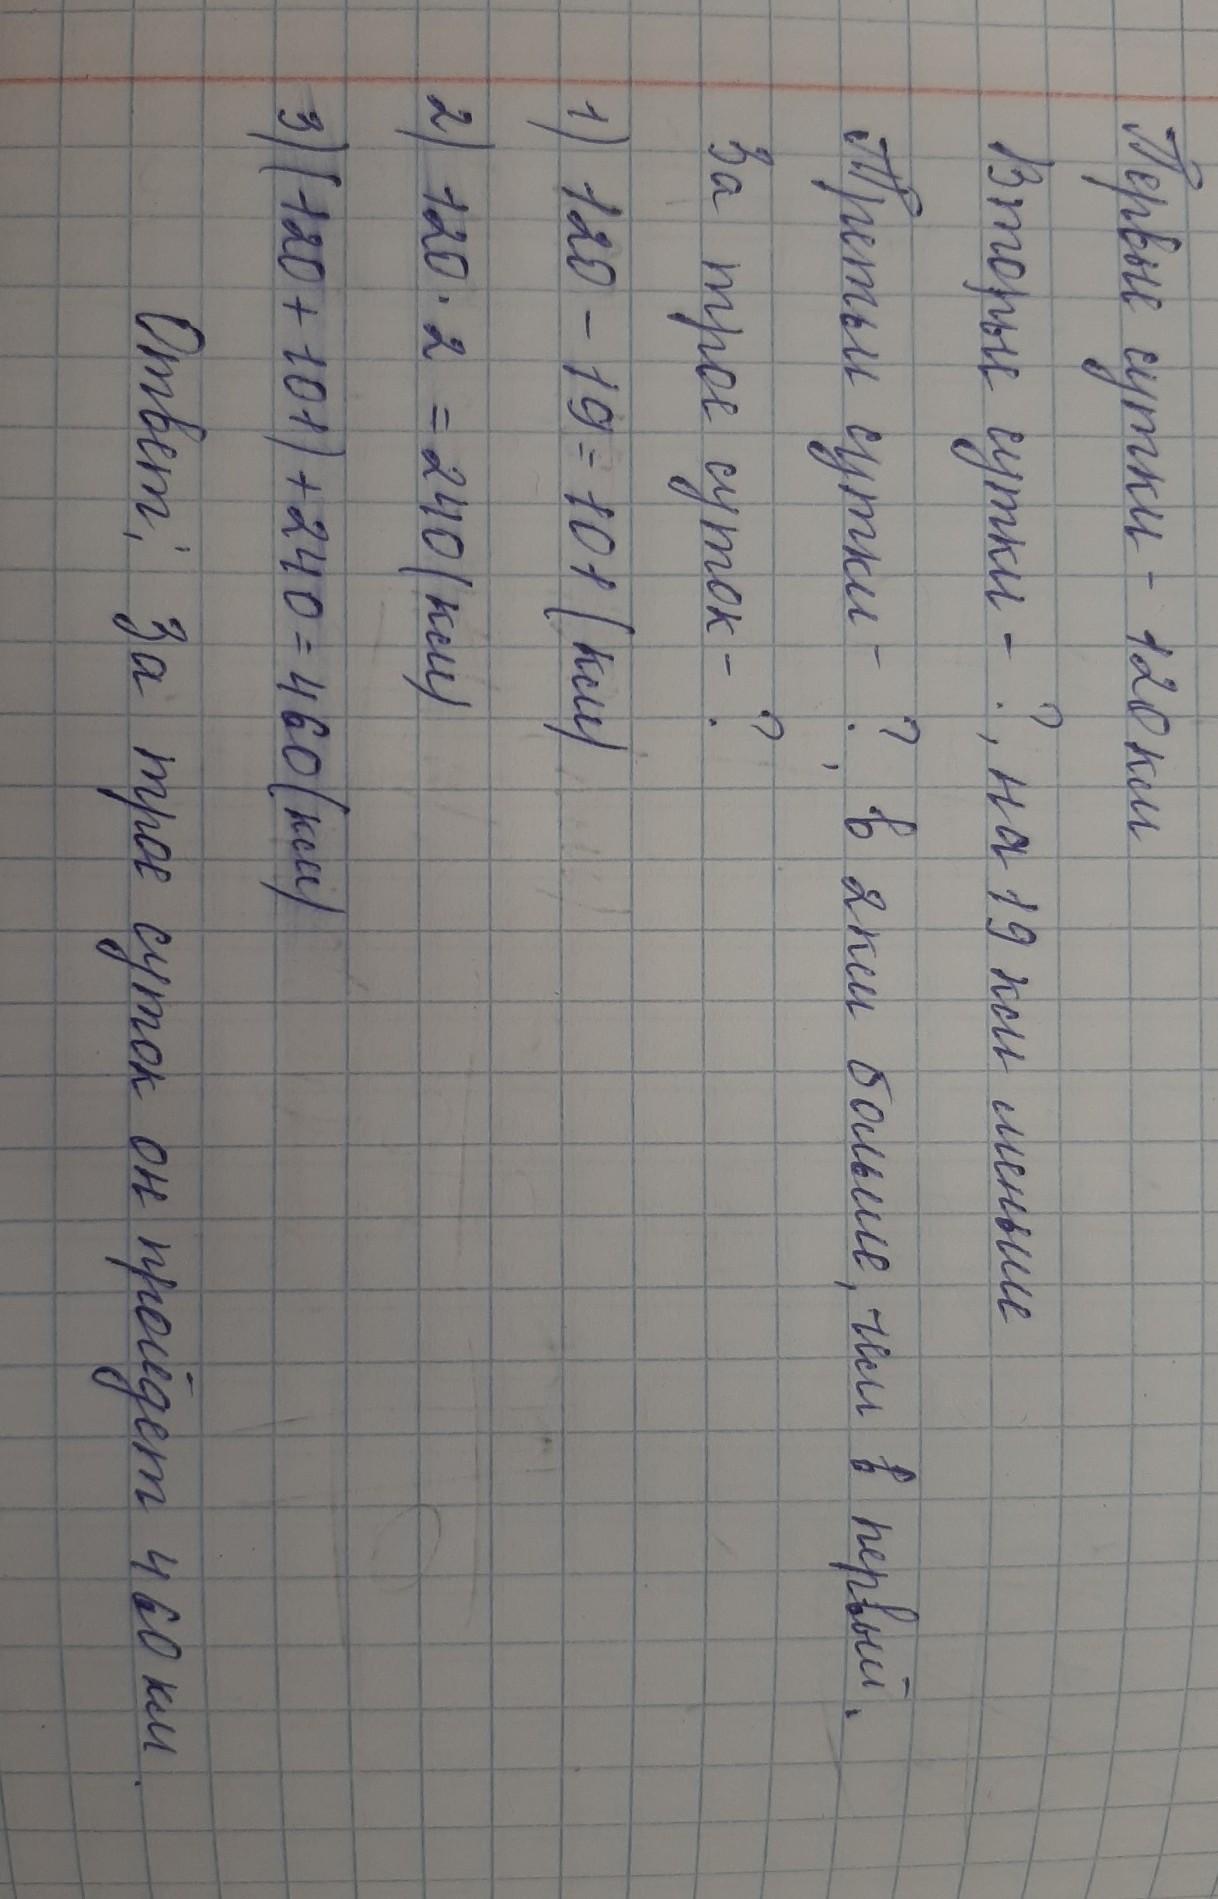 Первые сутки - 120 км
Вторые сутки - ?, на 19 км меньше
Третьи сутки - ?, в 2км больше, чем в первый.
За трое суток - ?
1) 120 - 19 = 101 (км)
2) 120 · 2 = 240 (км)
3) (120 + 101) + 240 = 460 (км)
Ответ: За трое суток он пройдет 460 км.